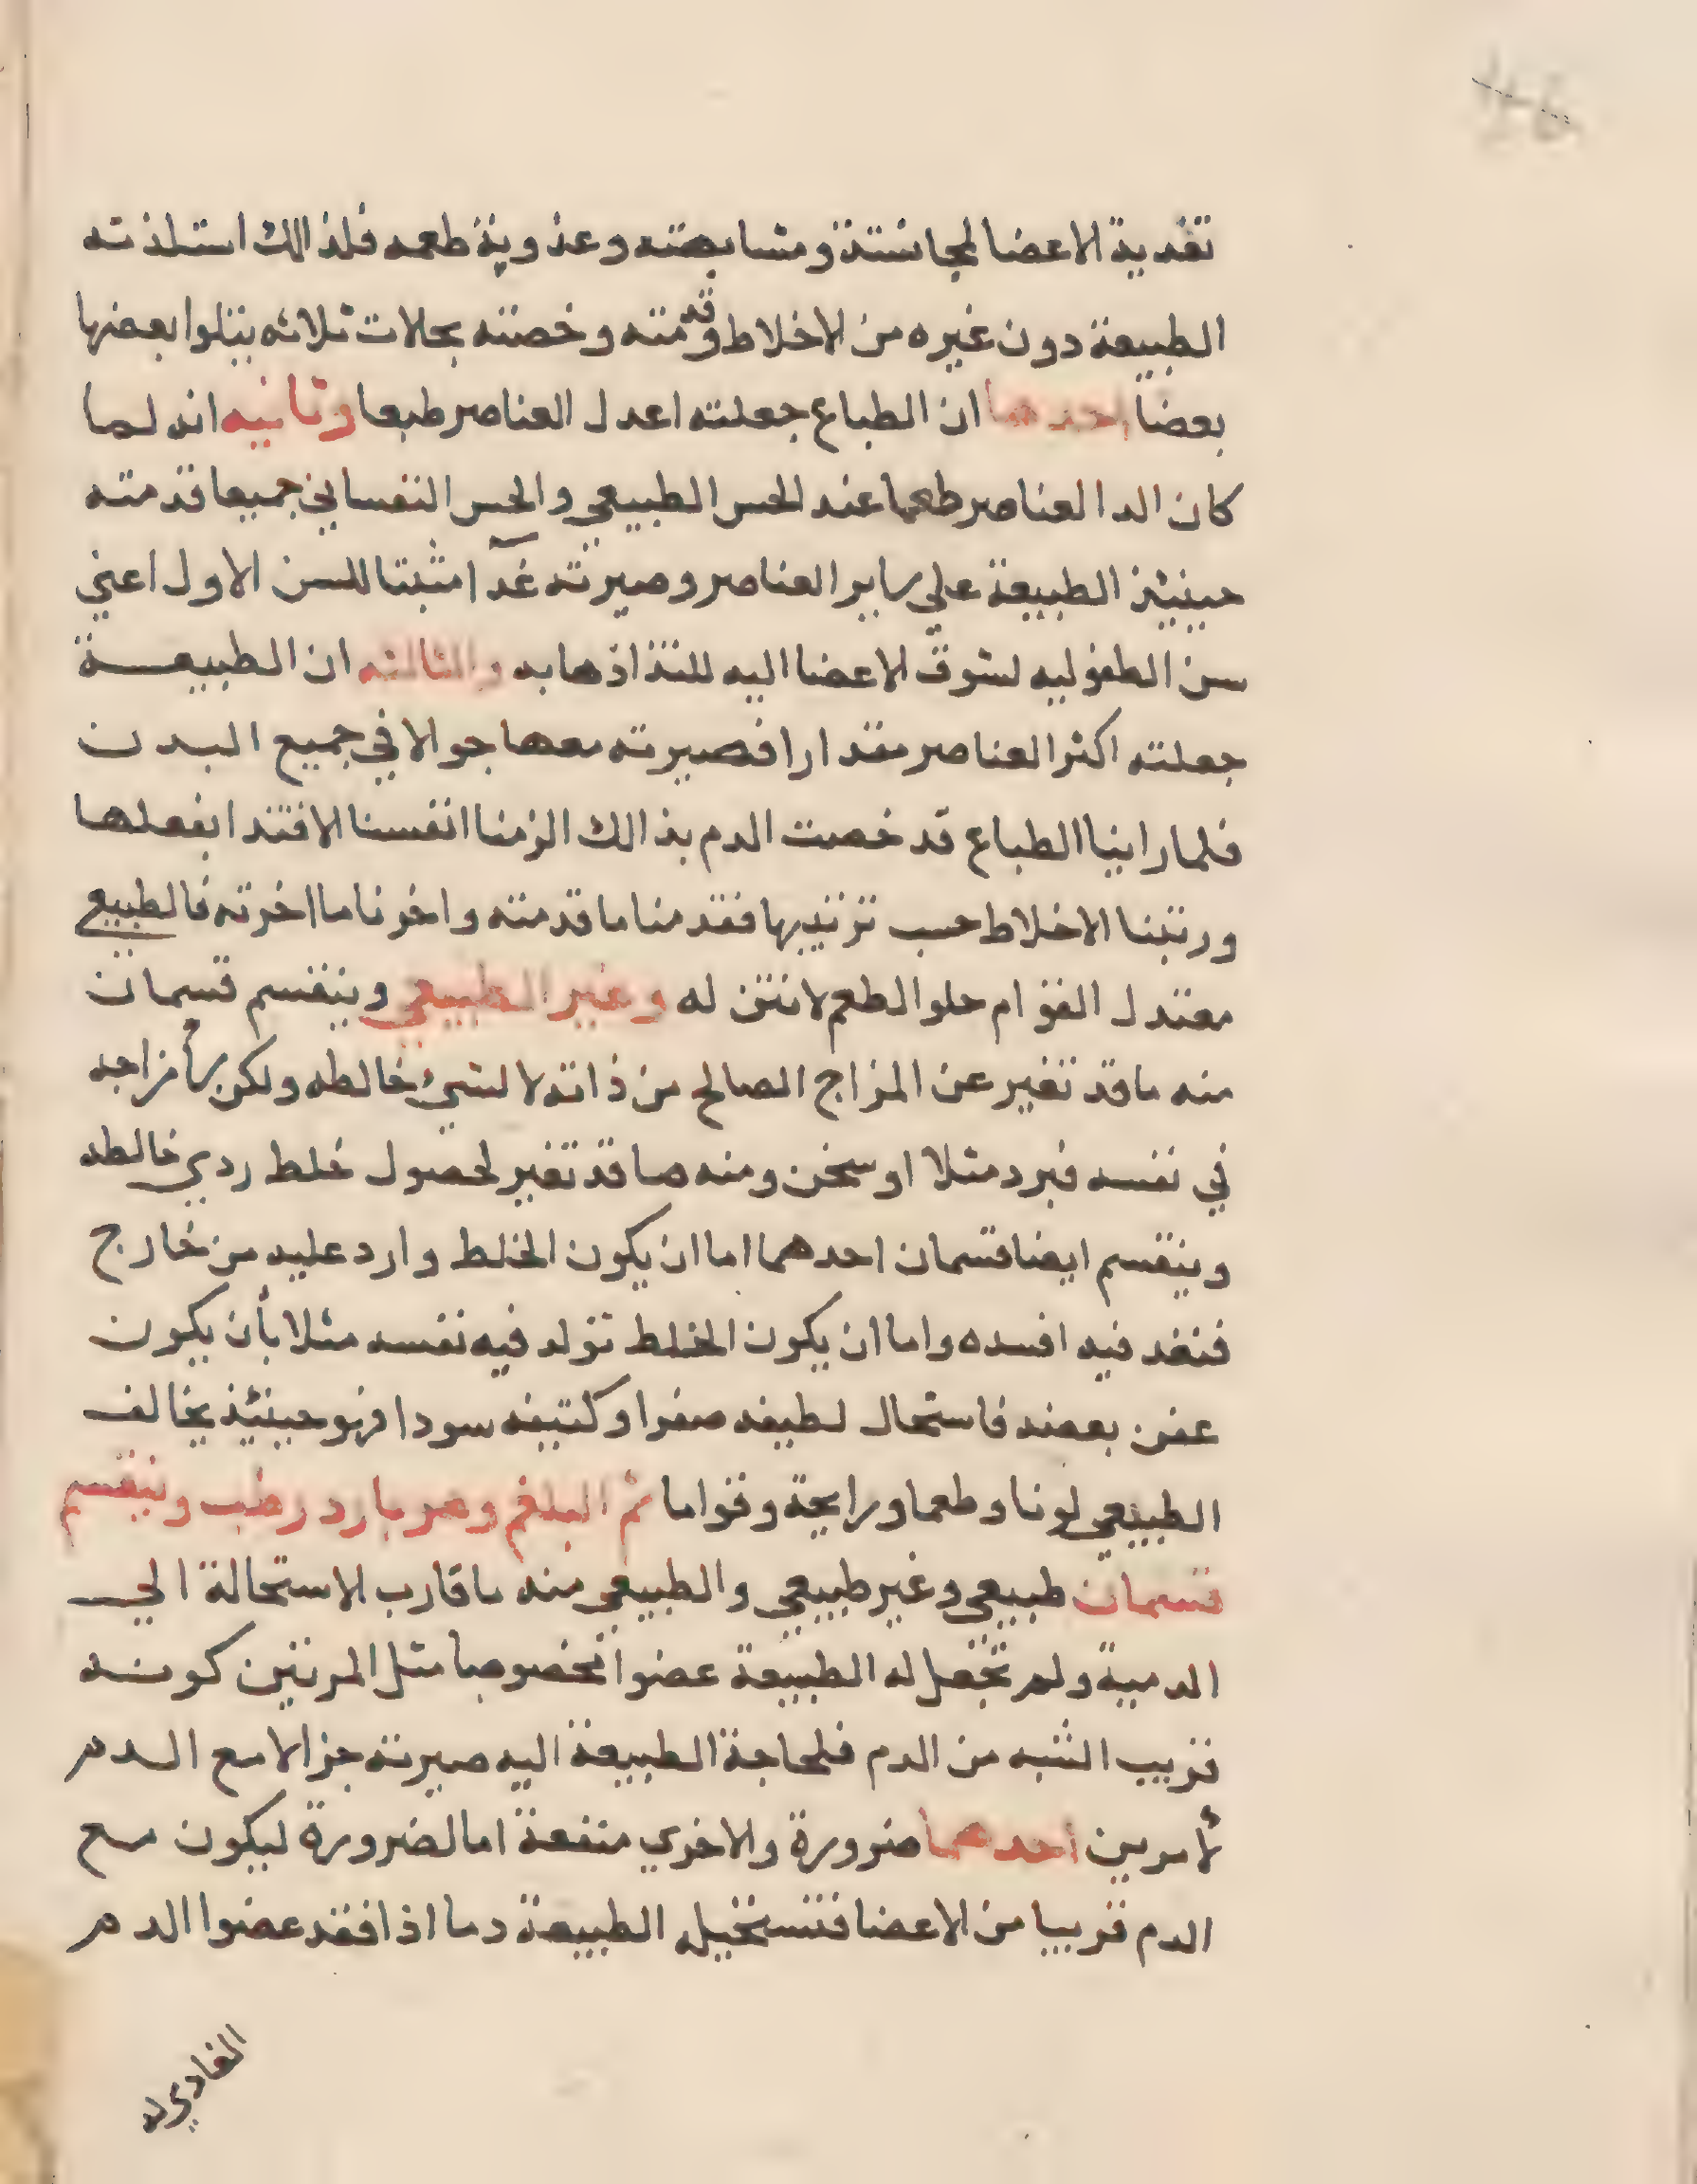 تغدية الاعضا لمجانستة ومشابهته وعذوبة طعمه فلذالك استلذته
الطبيعة دون غيره من الاخلاط وقدمته وخصته بحلات ثلاثه يتلوا بعضها
بعضا احدها ان الطباع جعلته اعدل العناصر طبعا وثانيه انه لما
كان الد العناصر طعما عند الحس الطبيعي والحس النفساني جميعا قدمته
حينيئذ الطبيعة علي ساير العناصر وصيرته غدآ امثبتا للسن الاول اعني
سن الطفوليه لشوق الاعضا اليه للتذاذها به والثالثه ان الطبيعة
جعلته اكثر العناصر مقدارا فصيرته معها جوالا في جميع البدن
فلما راينا الطباع قد خصت الدم بذالك الزمنا انفسنا الاقتدا بفعلها
ورتبنا الاخلاط حسب ترتيبها فقدمنا ما قدمته واخرنا ما اخرته فالطبيعي
معتدل القوام حلوا الطعم لانتن له وغير الطبيعي وينقسم قسمان
منه ماقد تغير عن المزاج الصالح من ذاته لا لشيء خالطه ولكن مزاجه
في نفسه فبرد مثلا او سخن ومنه ما قد تغير لحصول خلط ردي خالطه
وينقسم ايضا قسمان احدهما اما ان يكون الخلط وارد عليه من خارج
فنفد فيه افسده واما ان يكون الخلط تولد فيه نفسه مثلا بأن يكون
عفن بعضه فاستحال لطيفه صفرا وكثيفه سودا فهو حينئذ يخالف
الطبيعي لونا وطعما ورايحة وقواما ثم البلغم وهو بارد رطب وينقسم
قسمان طبيعي وغير طبيعي والطبيعي منه ما قارب الاستحالة الي
الدمية ولم تجعل له الطبيعة عضوا مخصوصا مثل المرتين كونه
قريب الشبه من الدم فلحاجة الطبيعة اليه صيرته جزالا مع الدم
لأمرين احدهما ضرورة والاخري منفعة اما لضرورة ليكون مع
الدم قريبا من الاعضا فتستحيله الطبيعة دما اذا فقد عضوا الدم
الغادي له